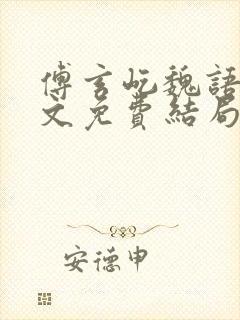 傅言屹魏語
文免費結局
安德申